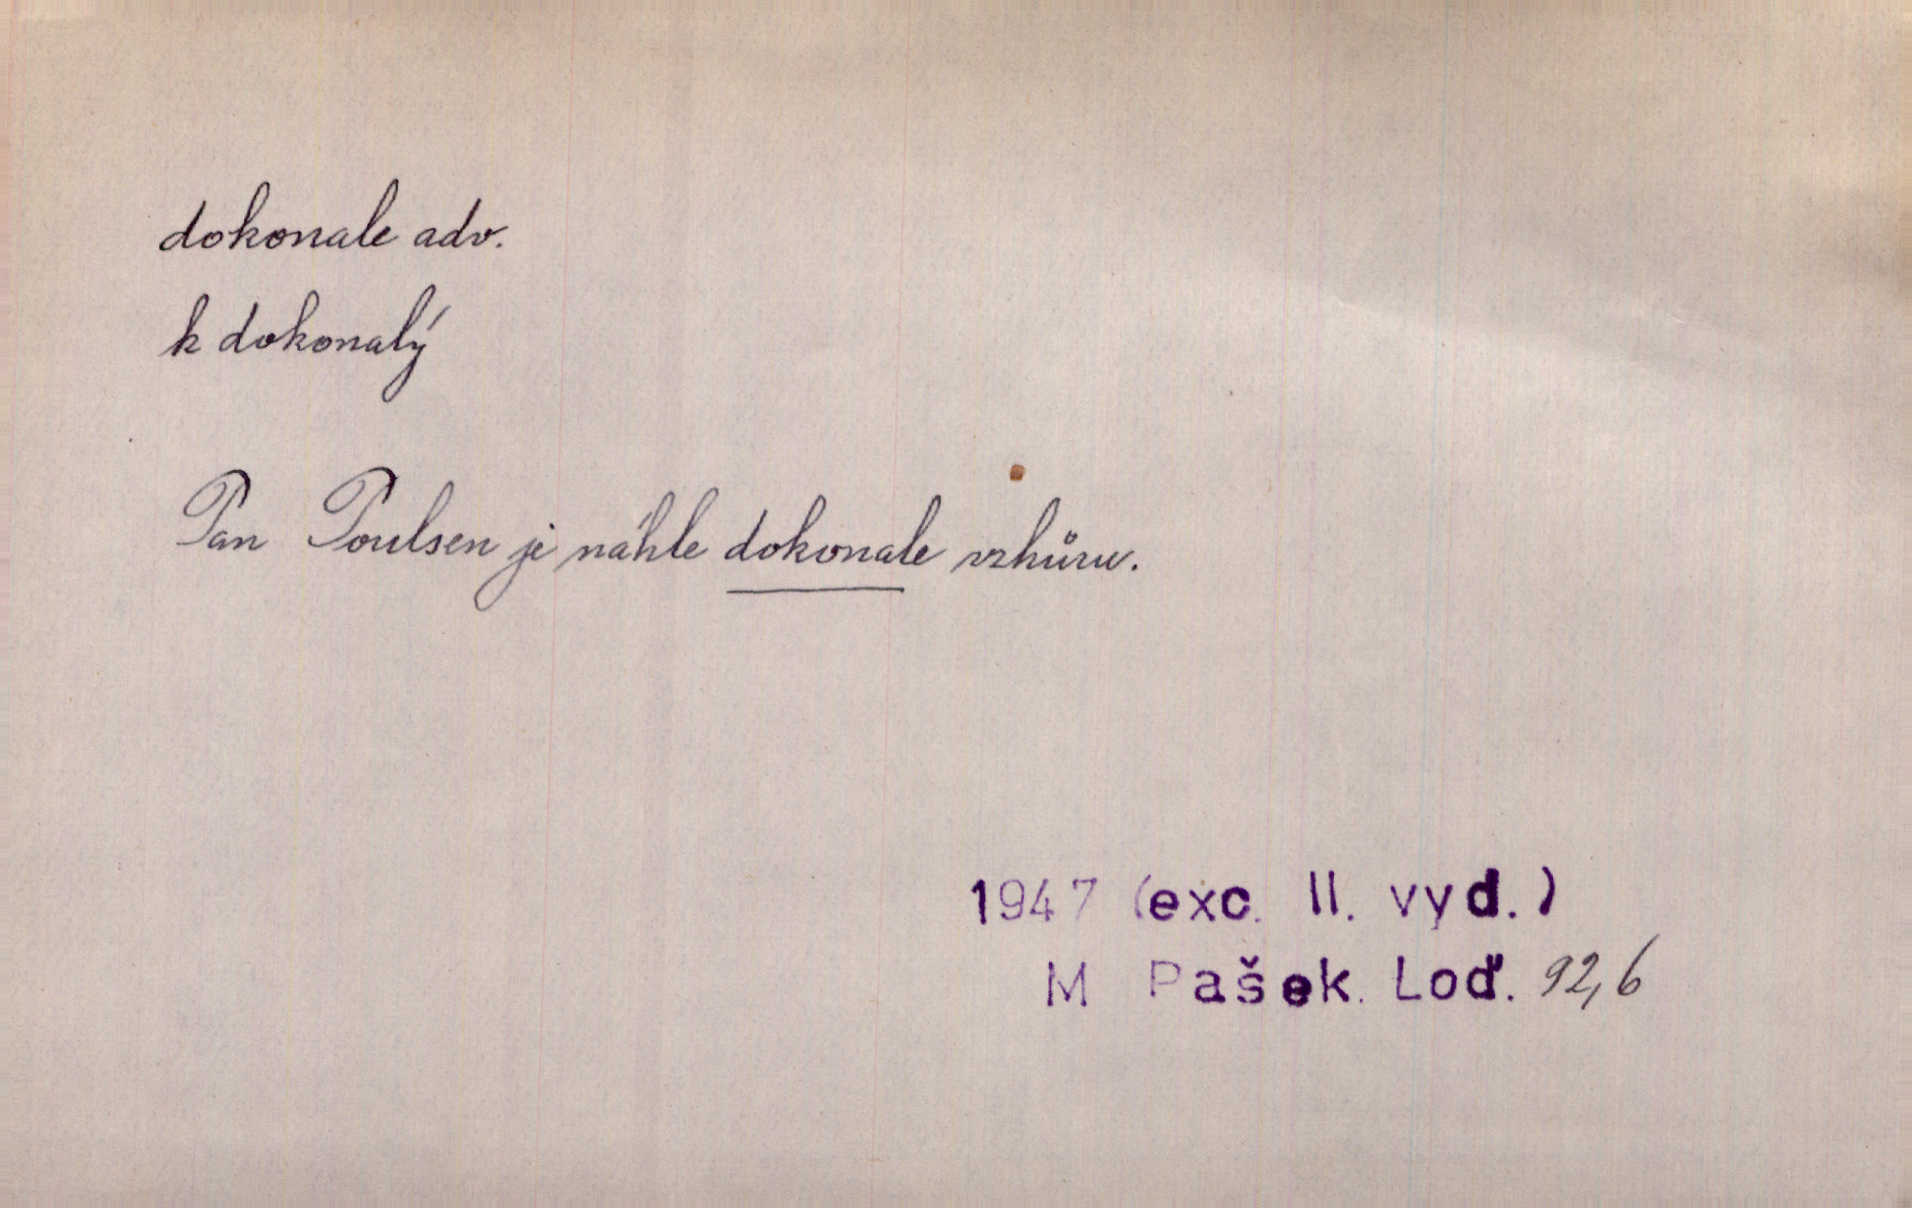 dokonale adv.
k dokonalý
Pan Poulsen je náhle dokonale vzhůru.
1947 (exc. II. vyd.)
M Pašek. Loď. 92,6